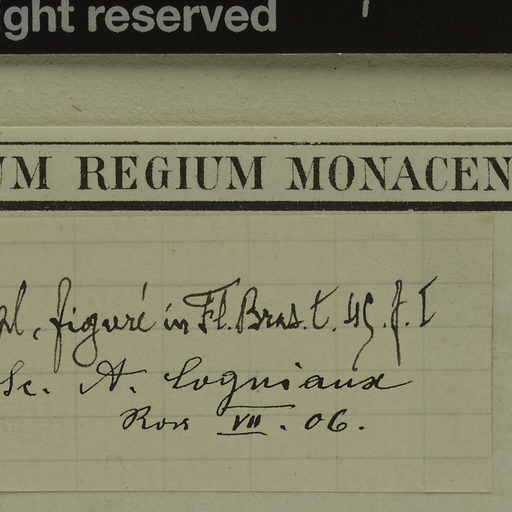 ght reserved
UM REGIUM MONACEN
pl, figuré in Fl. Bras. t. 45. f. I
Sc. A. Cogniaux
Ross VII. 06.